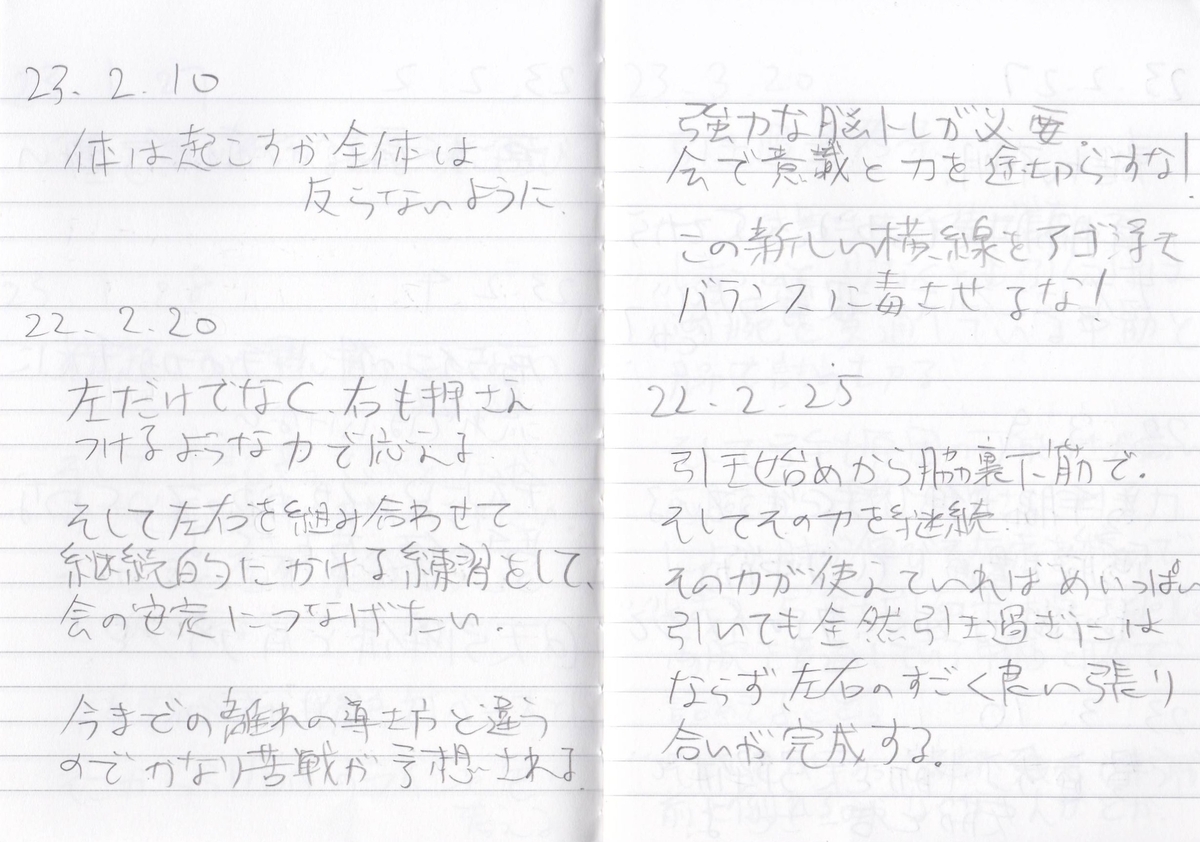 23. 2. 10
体は起こすが全体は
反らないように.
22. 2. 20
左だけでなく、右も押さえ
つけるような力で応える.
そして左右を組み合わせて
継続的にかける練習をして、
会の安定につなげたい.
今までの離れの導き方と違う
のでかなり苦戦が予想される.
強力な脳トレが必要.
会で意識と力を途切らすな!
この新しい横線とアゴ浮て
バランスに毒させるな!
22. 2. 25
引き始めから脇裏下筋で.
そしてその力を継続.
その力が使えていればめいっぱい
引いても全然引き過ぎには
ならず、左右のすごく良い張り
合いが完成する。